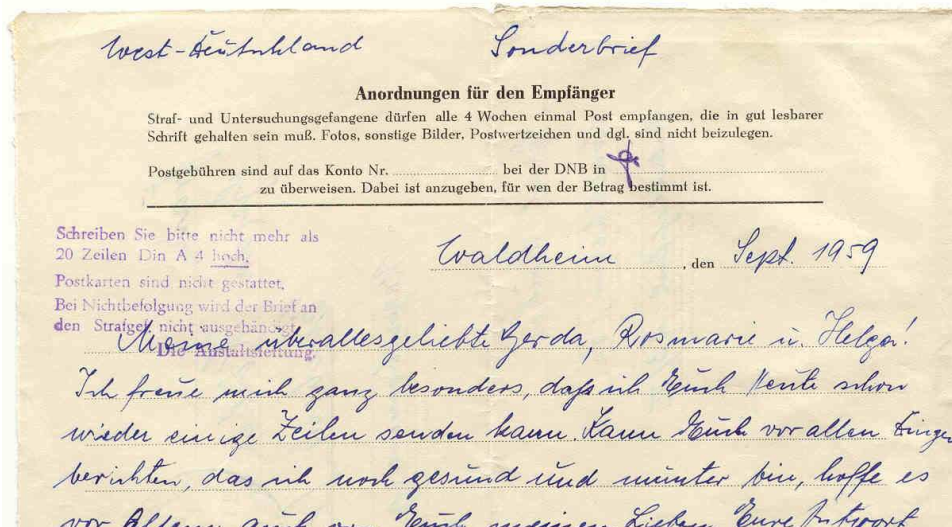 West-Deutschland Sonderbrief
Anordnungen für den Empfänger
Straf- und Untersuchungsgefangene dürfen alle 4 Wochen einmal Post empfangen, die in gut lesbarer
Schrift gehalten sein muß. Fotos, sonstige Bilder, Postwertzeichen und dgl. sind nicht beizulegen.
Postgebühren sind auf das Konto Nr. bei der DNB in
zu überweisen. Dabei ist anzugeben, für wen der Betrag bestimmt ist.
Schreiben Sie bitte nicht mehr als
20 Zeilen Din A 4 hoch.
Postkarten sind nicht gestattet.
Bei Nichtbefolgung wird der Brief an
den Strafgef. nicht ausgehändigt
Die Anstaltsleitung.
Waldheim, den Sept. 1959
Meine überallesgeliebte Gerda, Rosmarie u. Helga!
Ich freue mich ganz besonders, daß ich Euch Heute schon
wieder einige Zeilen senden kann. Kann Euch vor allen Dingen
berichten, das ich noch gesund und munter bin, hoffe es
vor Allem auch von Euch meinen Lieben. Eure Antwort